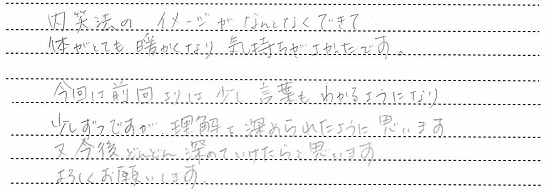 内笑法の イメージが なんとなくできて
体がとても 暖かくなり 気持ちがよかったです。
今回は前回よりは 少し 言葉も わかるようになり
少しずつですが 理解も 深められたように 思います
又 今後 どんどん 深めていけたらと思います
よろしくお願いします。